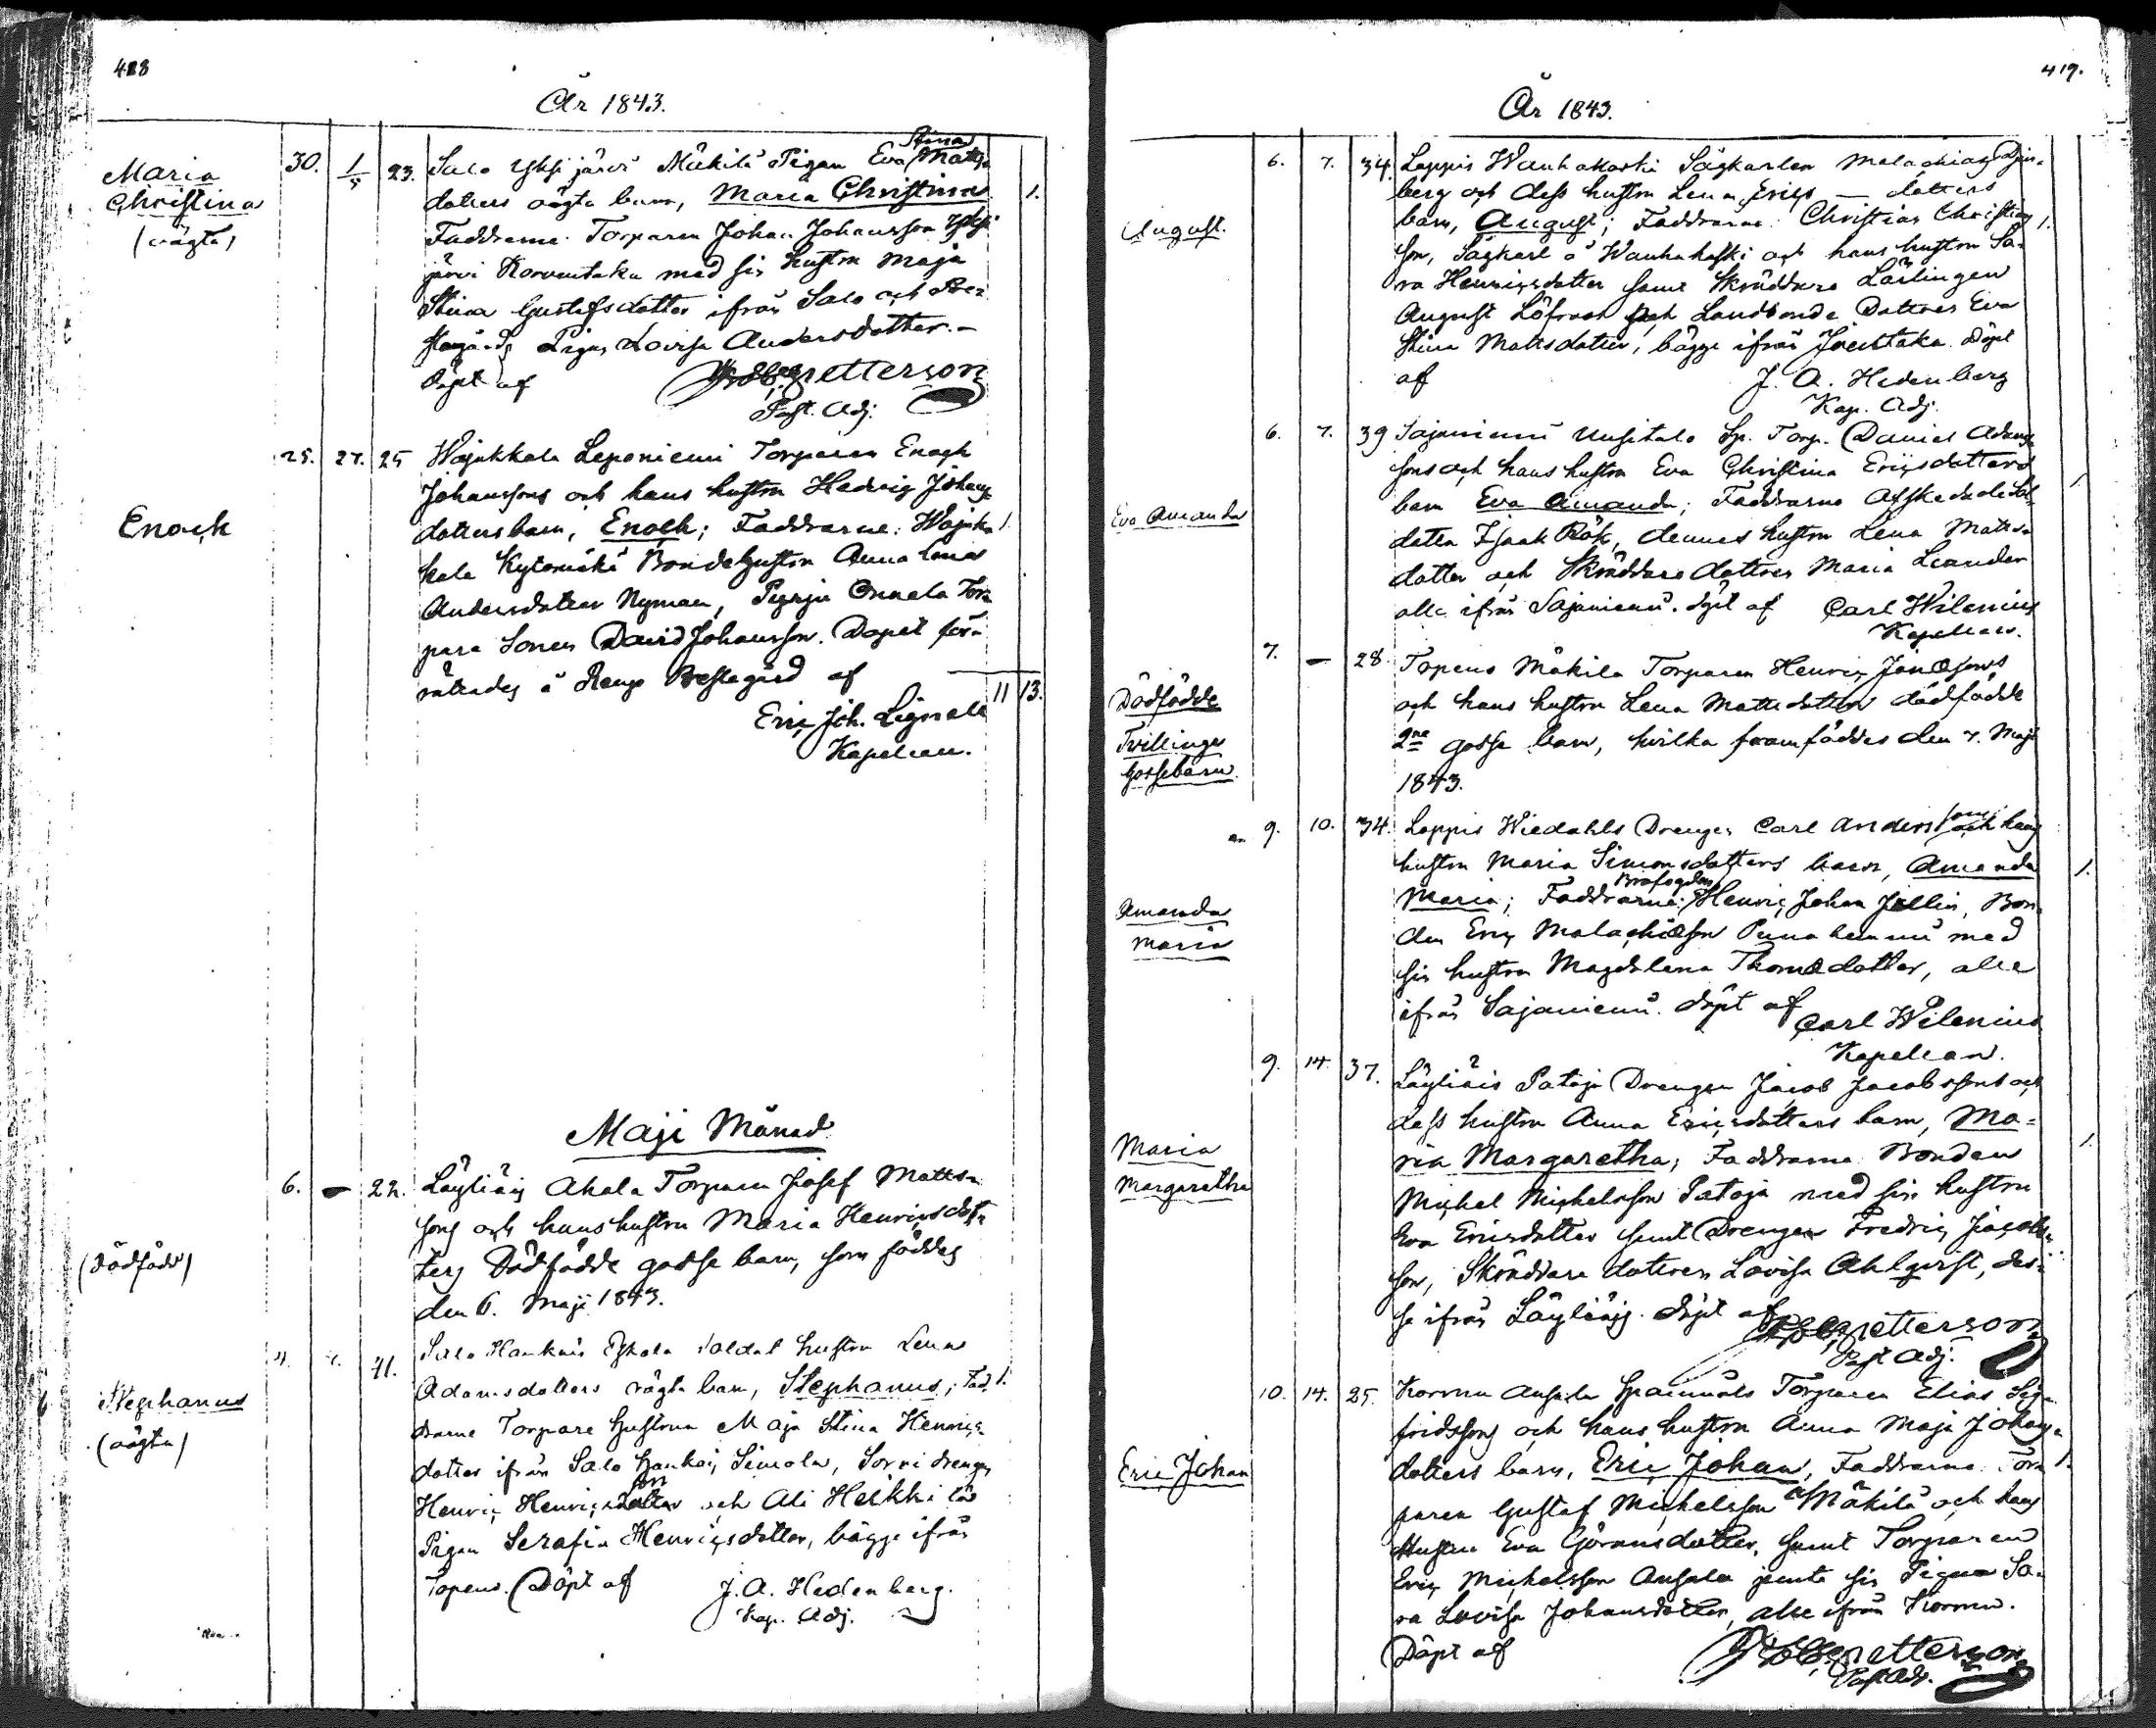 418
År 1843.
Maria
Christina
(oägta)
30. 1/5 23. Salo Yksjärvi Mäkilä Pigan Eva Stina Matts
dotters oägta barn, Maria Christina 1.
Faddrarne. Torparen Johan Johansson Yksjä
järvi Korventaka med sin hustru Maja
Stina Gustafsdotter ifrån Salo och Pre-
stgårds Pigan Lovisa Andersdotter.-
Döpt af Petterson
Past. Adj.
Enoch
25. 27. 25 Wojakkala Leponiemi Torparen Enoch
Johanssons och hans hustru Hedvig Johans
dotters barn, Enoch; Faddrarne: Wojak- 1.
kala Kytömäki Bondehustrun Anna Lena
Andersdotter Nyman, Onnela Tor-
pare Sonen David Johansson. Dopet för-
rättades å Rengo Prestegård af 11 13.
Eric Joh. Lignell
Kapellan.
Maji Månad
(Dödfödd)
6. - 22. Läyliäis Ahola Torparen Josef Matts-
sons och hans hustru Maria Henricsdot-
ters Dödfödde gosse barn, som föddes
den 6. Maji 1843.
Stephanus
(oägta)
4. 7. 41. Salo Kankais Eskola Soldat hustru Lena
Adamsdotters oägta barn, Stephanus; Fad- 1.
darne Torpare hustrun Maja Stina Henrics-
dotter ifrån Salo Simola, Sorri drengen
Henric Henricsson och Ali Heikkilä
Pigan Serafia Henricsdotter, bägge ifrån
Topeno. Döpt af J. A. Hedenberg.
Kap. Adj.
419.
År 1843.
August.
6. 7. 34. Loppis Wanhakoski Sågkarlen Malachias
berg och dess hustru Lena Erics - dotters
barn, August; Faddrarne: Christian Christians 1.
son, Sågkarl å Wanhakoski och hans hustru Sa-
ra Henricsdotter samt Skräddare Lärlingen
August Löfroos och Landbonde Dottren Eva
Stina Mattsdotter, bägge ifrån Joentaka. Döpt
af J. A. Hedenberg
Kap. Adj.
Eva Amanda
6. 7. 39 Sajaniemi Uusitalo Sp. Torp. Daniel Adams
sons och hans hustru Eva Christina Ericsdotters 1
barn Eva Amanda; Faddrarne Afskedade Sol-
daten Isaak Rök, dennes hustru Lena Matts-
dotter och Skräddare dottren Maria Leander
alla ifrån Sajaniemi. Döpt af Carl Wilenius
Kapellan.
Dödfödde
Tvillinge
Gossebarn
7. - 28. Topeno Mäkilä Torparen Henric Jonæsons
och hans hustru Lena Mattsdotters dödfödde
2ne gosse barn, hvilka framföddes den 7. Maji
1843.
Amanda
Maria
9. 10. 34. Loppis Wiedahls Drengen Carl Anderssons och hans
hustru Maria Simonsdotters barn, Amanda 1.
Maria; Faddrarne: Brofogden Henric Johan Jellin, Bon-
den Eric Malachiæson med
sin hustru Magdalena Thomædotter, alla
ifrån Sajaniemi. döpt af
Carl Wilenius
Kapellan.
Maria
Margaretha
9. 14 37. Läyliäis Pataja Drengen Jacob Jacobssons och
dess hustru Anna Ericsdotters barn, Ma-
ria Margaretha; Faddrarne Bonden 1.
Michel Michelsson Pataja med sin hustru
Eva Ericsdotter samt Drengen Fredric Jacobs-
son, Skräddare dottren Lovisa Ahlqvist, des-
se ifrån Läyliäis. döpt af Petterson
Past Adj.
Eric Johan
10. 14. 25. Kormu Ansala Torparen Elias Sig-
fridssons och hans hustru Anna Maja Johans-
dotters barn, Eric Johan, Faddrarne: Tor- 1.
paren Gustaf Michelsson af Mäkilä och hans
Hustru Eva Göransdotter, samt Torparen
Eric Michelsson Ansala jemte sin Pigan Sa-
ra Lovisa Johansdotter, alle ifrån Kormu.
Döpt af Petterson
Past. Adj.